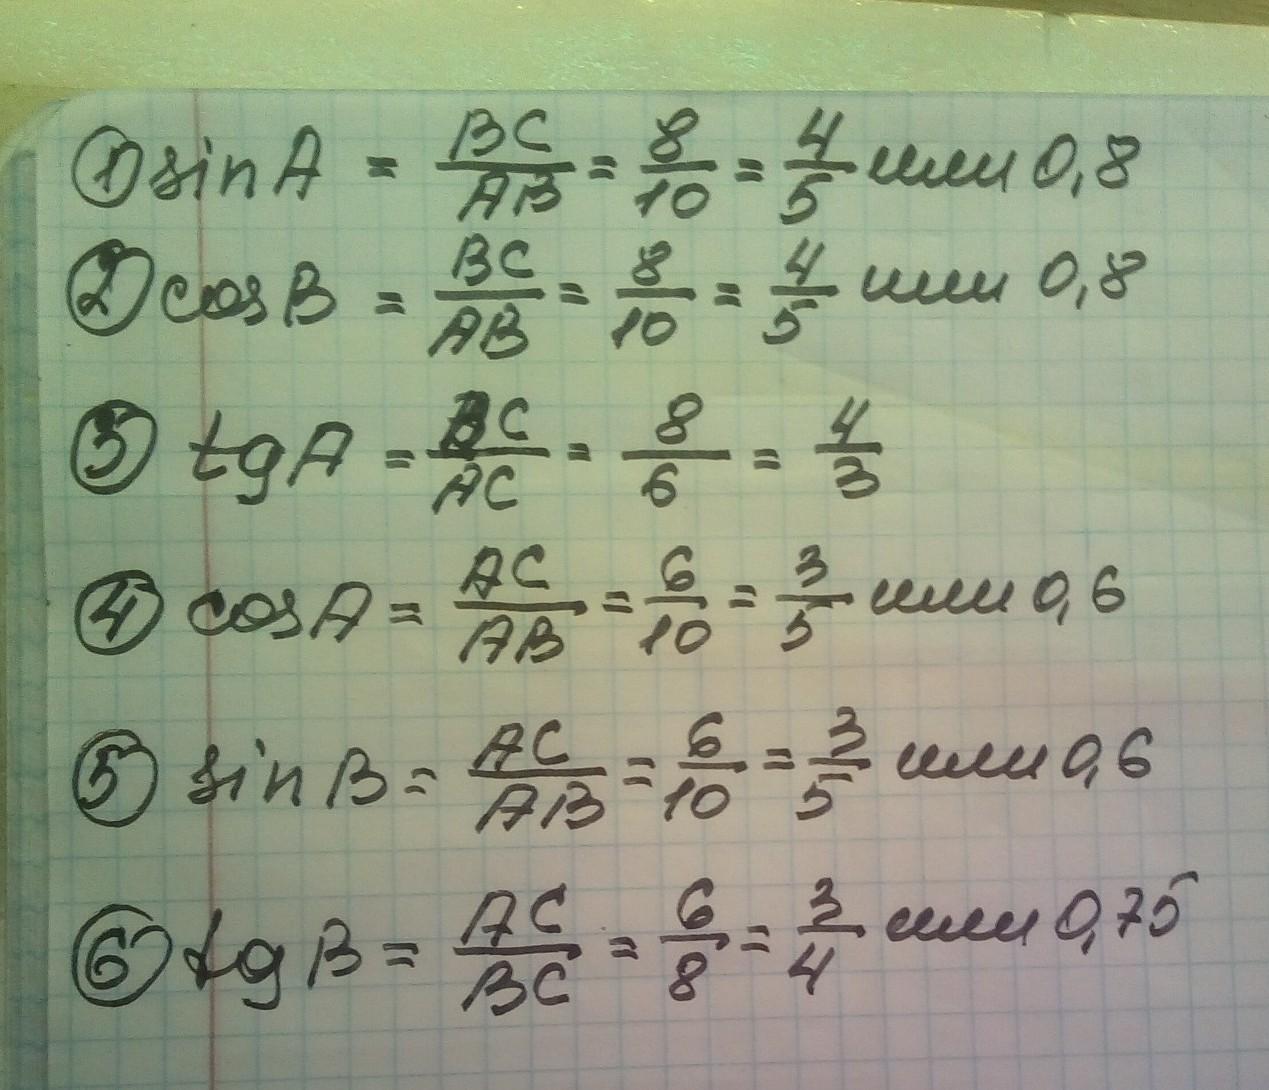 ① sin A = BC/AB = 8/10 = 4/5 или 0,8
② cos B = BC/AB = 8/10 = 4/5 или 0,8
③ tg A = BC/AC = 8/6 = 4/3
④ cos A = AC/AB = 6/10 = 3/5 или 0,6
⑤ sin B = AC/AB = 6/10 = 3/5 или 0,6
⑥ tg B = AC/BC = 6/8 = 3/4 или 0,75